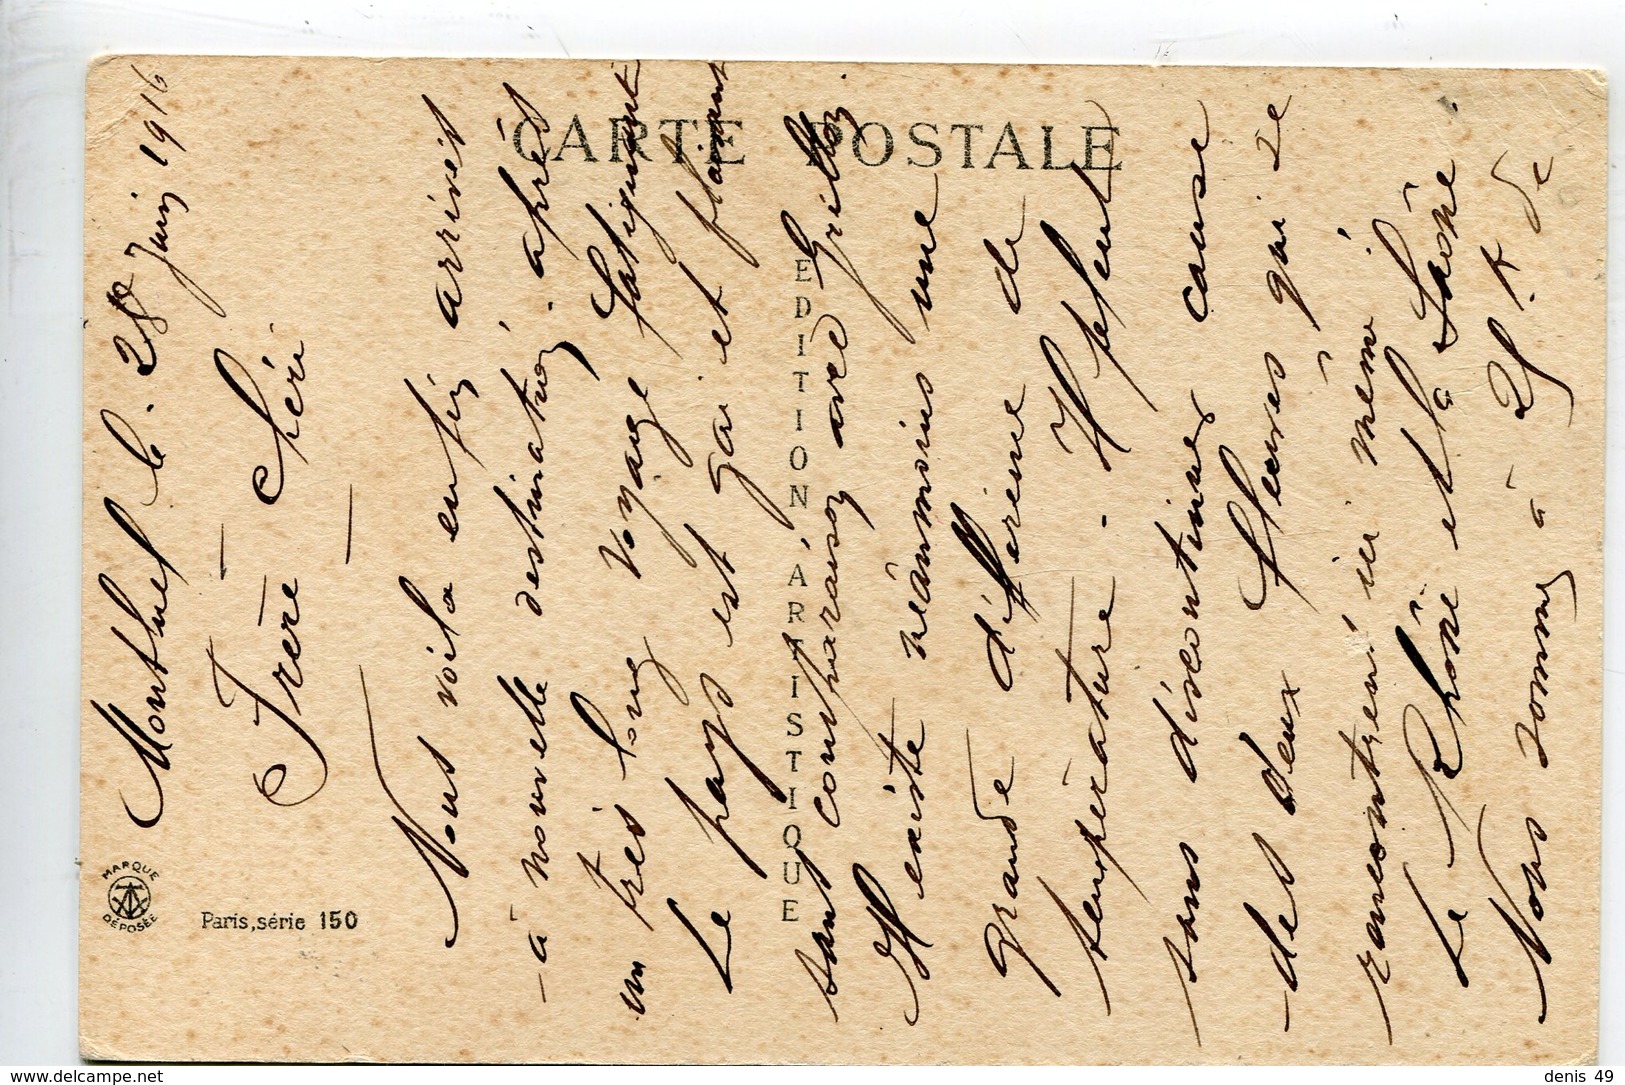 Montluel le. 28 Juin 1916
Frère Séri
Nous voila enfin arrivés
à nouvelle destination, après
un très long voyage fatiguant
Le pays est gai et
sans comparaison avec Grillon.
Il existe néanmoins une
grande différence de
température. Il pleut
sans discontinuer cause
des deux fleuves qui se
rencontrent ici même.
Le Rhône et la Saône
Nous sommes à 25 K de
CARTE POSTALE
EDITION ARTISTIQUE
MARQUE DÉPOSÉE
Paris, série 150
delcampe.net
denis 49